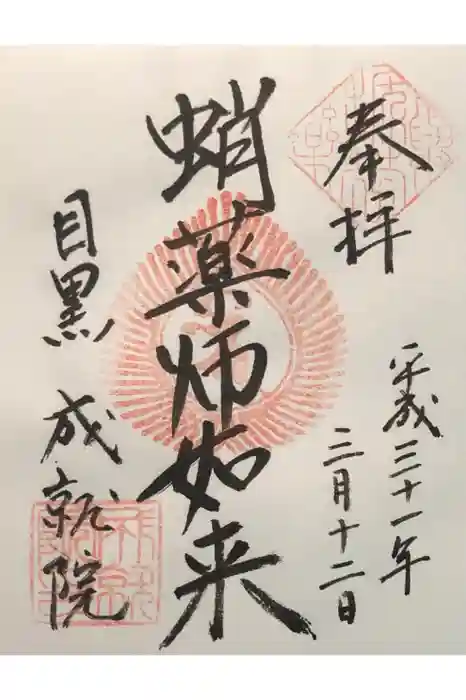 奉拝
平成三十一年
三月十二日
蛸薬师如来
目黒 成就院